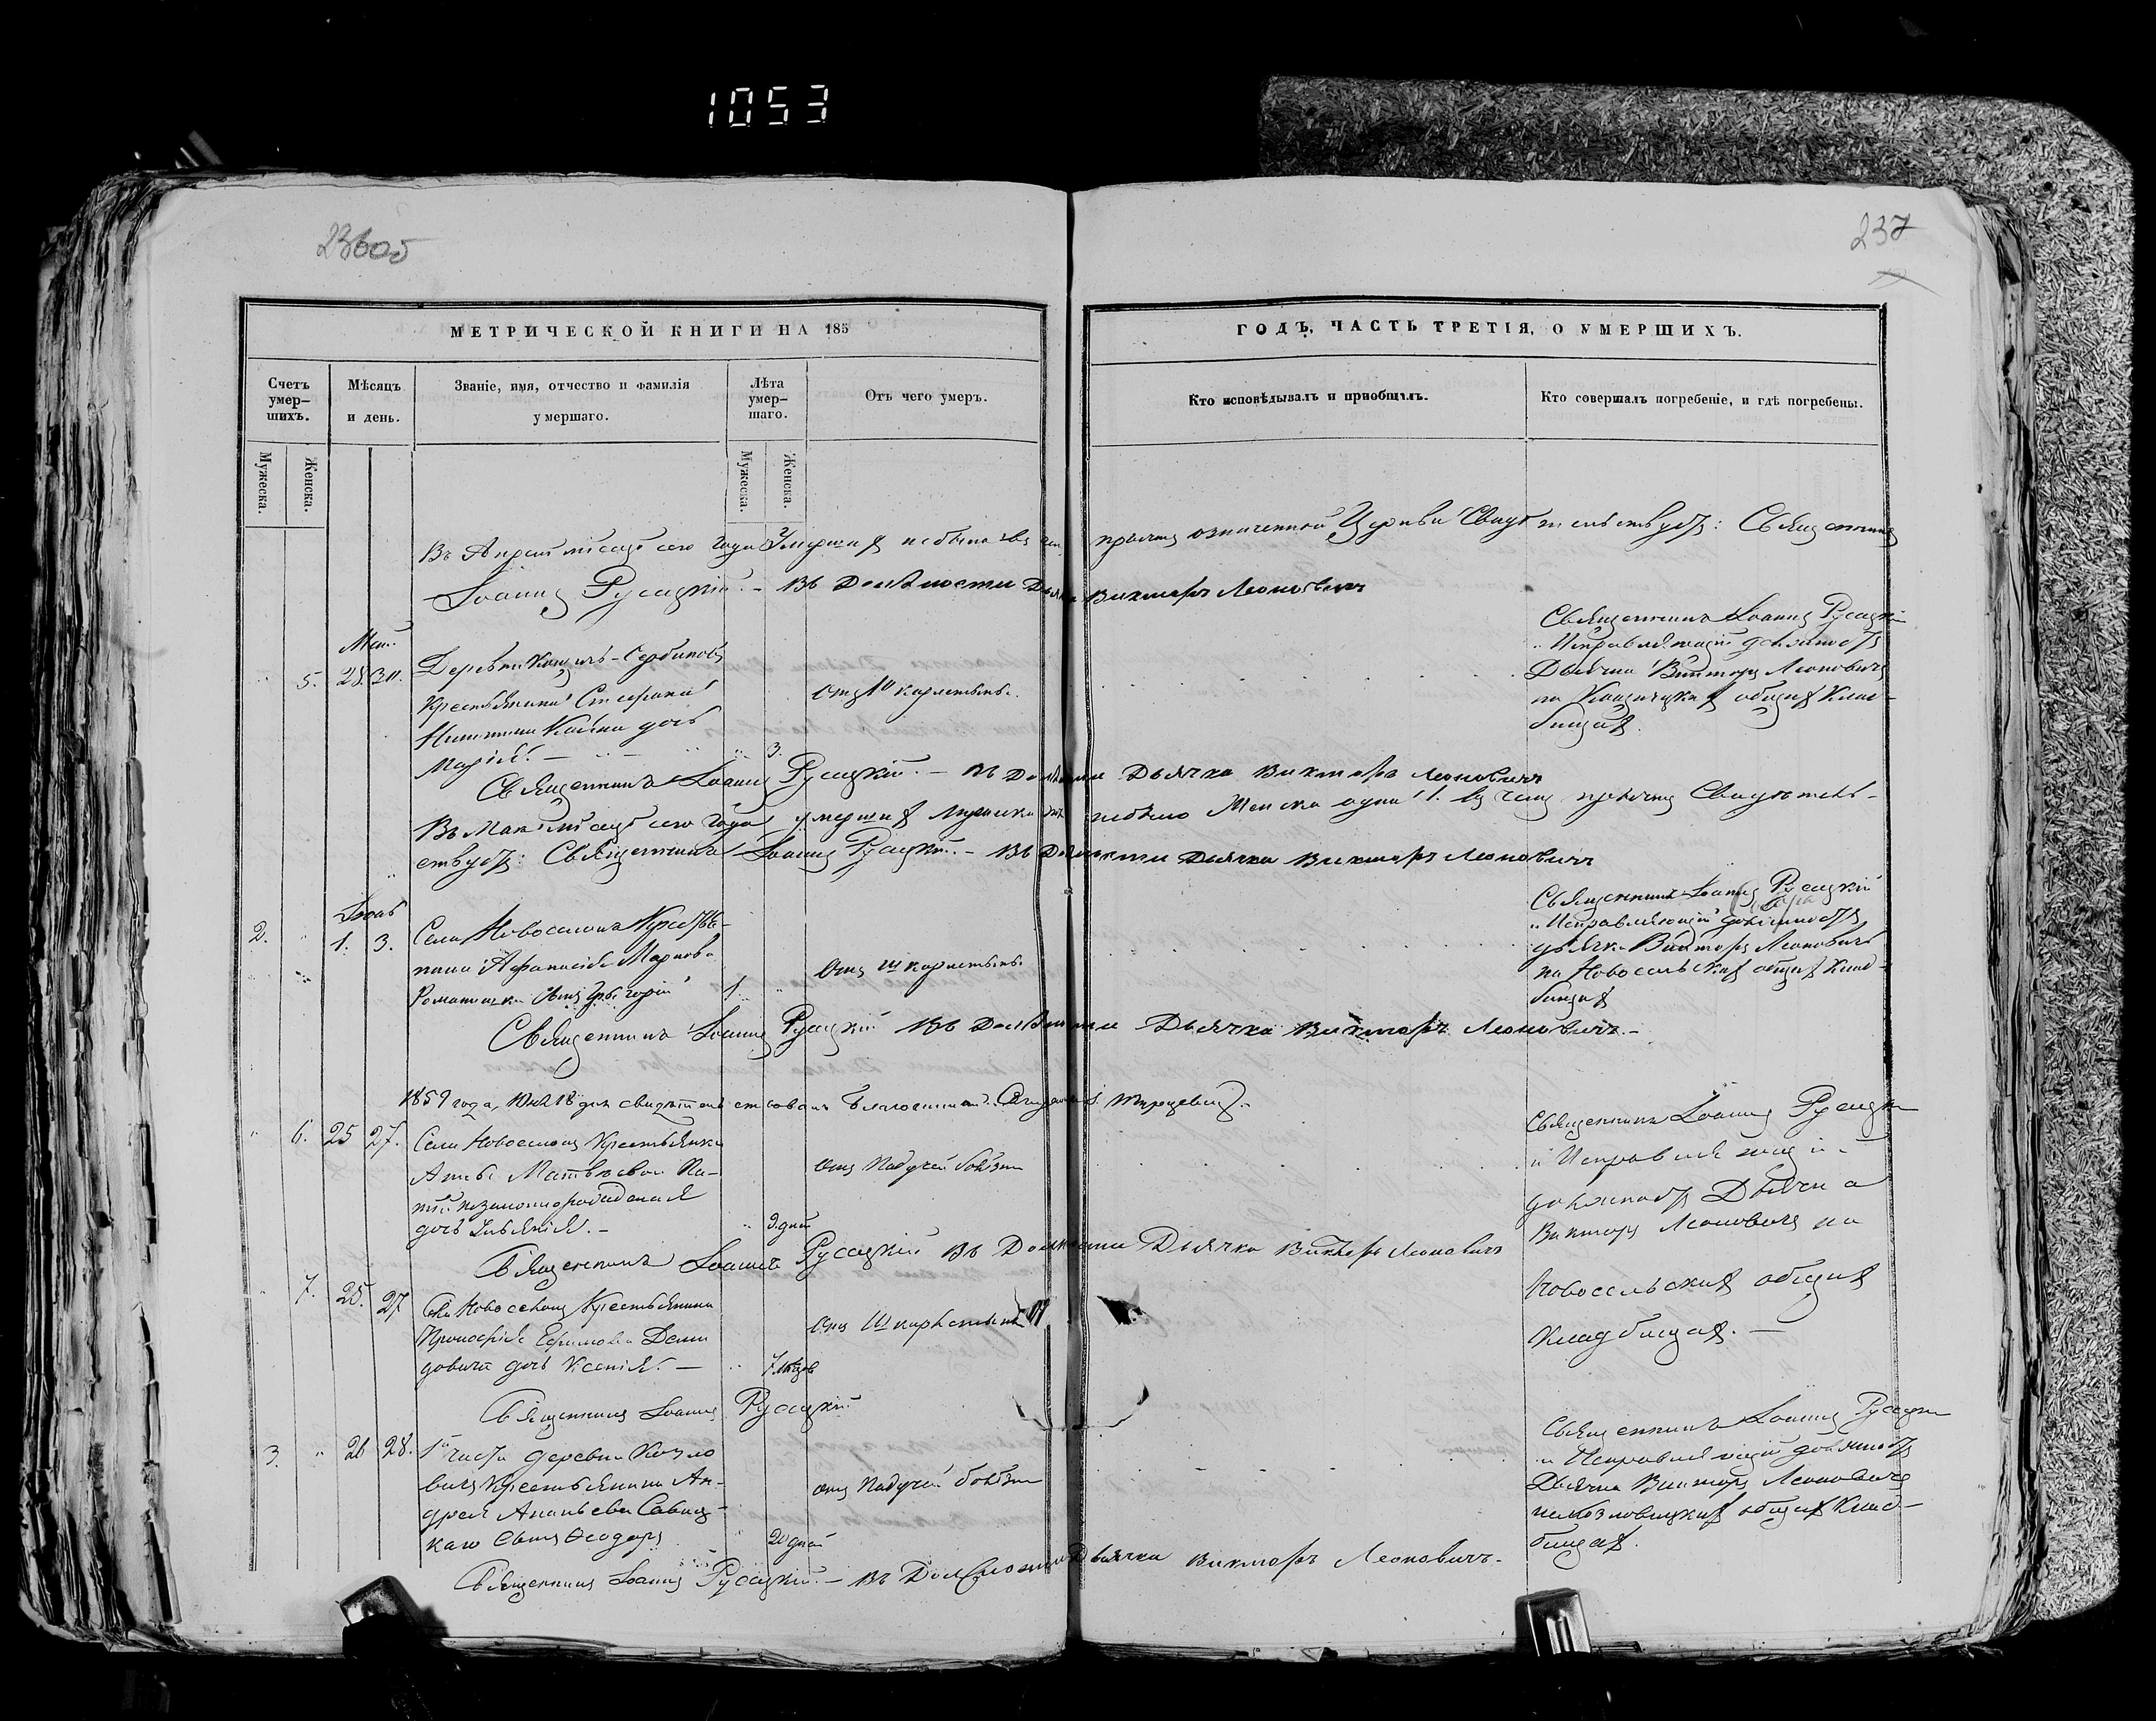 1053
236об
237
МЕТРИЧЕСКОЙ КНИГИ НА 185
Счетъ умер-шихъ.
Мѣсяцъ и день.
Званіе, имя, отчество и фамилія умершаго.
Лѣта умер-шаго.
Отъ чего умеръ.
Мужеска.
Женска.
Мужеска.
Женска.
ГОДЪ, ЧАСТЬ ТРЕТІЯ, О УМЕРШИХЪ.
Кто исповѣдывалъ и пріобщалъ.
Кто совершалъ погребеніе, и гдѣ погребены.
Въ Апрѣлѣ мѣсяцѣ сего года Умершихъ небыло въ чемъ причтъ означенной Церкви Свидѣтельствуетъ: Священникъ
Іоаннъ Русецкій. - Въ Должности Дьячка Викторъ Леоновичъ
Май
5. 28. 30.
Деревни
Крестьянина Стефана
дочь
Марія. - 3.
Отъ коклюша
Священникъ Іоаннъ Русецкій
и Исправляющій должность
Дьячка Викторъ Леоновичъ
на общихъ клад-
бищахъ.
Священникъ Іоаннъ Русецкій. - Въ Должности Дьячка Викторъ Леоновичъ
Въ Маѣ мѣсяцѣ сего года умершихъ Мужеска небыло Женска одна 1. въ чемъ причтъ Свидѣтель-
ствуетъ: Священникъ Іоаннъ Русецкій. - Въ Должности Дьячка Викторъ Леоновичъ
2. 1. 3.
Села Новоселокъ Крестья-
нина Афанасія Маркова
сынъ Григорій 1.
Отъ
Священникъ Іоаннъ Русецкій
и Исправляющій должность
дьячка Викторъ Леоновичъ
на Новосельскихъ общихъ клад-
бищахъ
Священникъ Іоаннъ Русецкій Въ Должности Дьячка Викторъ Леоновичъ. -
1859 года, 18 дня свидѣтельствовалъ Благочинный Священникъ
6. 25 27.
Села Новоселокъ Крестьянки
Матвѣевой
незаконнорожденная
дочь 9 дней
отъ Падучей болѣзни
Священникъ Іоаннъ Русецкій
и Исправляющій
должность Дьячка
Викторъ Леоновичъ на
Новосельскихъ общихъ
кладбищахъ. -
Священникъ Іоаннъ Русецкій Въ Должности Дьячка Викторъ Леоновичъ
7. 25. 27
Села Новоселокъ Крестьянина
Прокофія Ефимова Деми-
довича дочь Ксенія. -
Отъ
Священникъ Іоаннъ Русецкій
3. 26 28.
деревни Козло-
вичъ Крестьянина Ан-
дрея Ананьева Савиц-
каго сынъ Ѳеодоръ 20 дней
отъ Падучей болѣзни
Священникъ Іоаннъ Русецкій
и Исправляющій должность
Дьячка Викторъ Леоновичъ
на Козловицкихъ общихъ клад-
бищахъ.
Священникъ Іоаннъ Русецкій. - Въ Должности Дьячка Викторъ Леоновичъ.